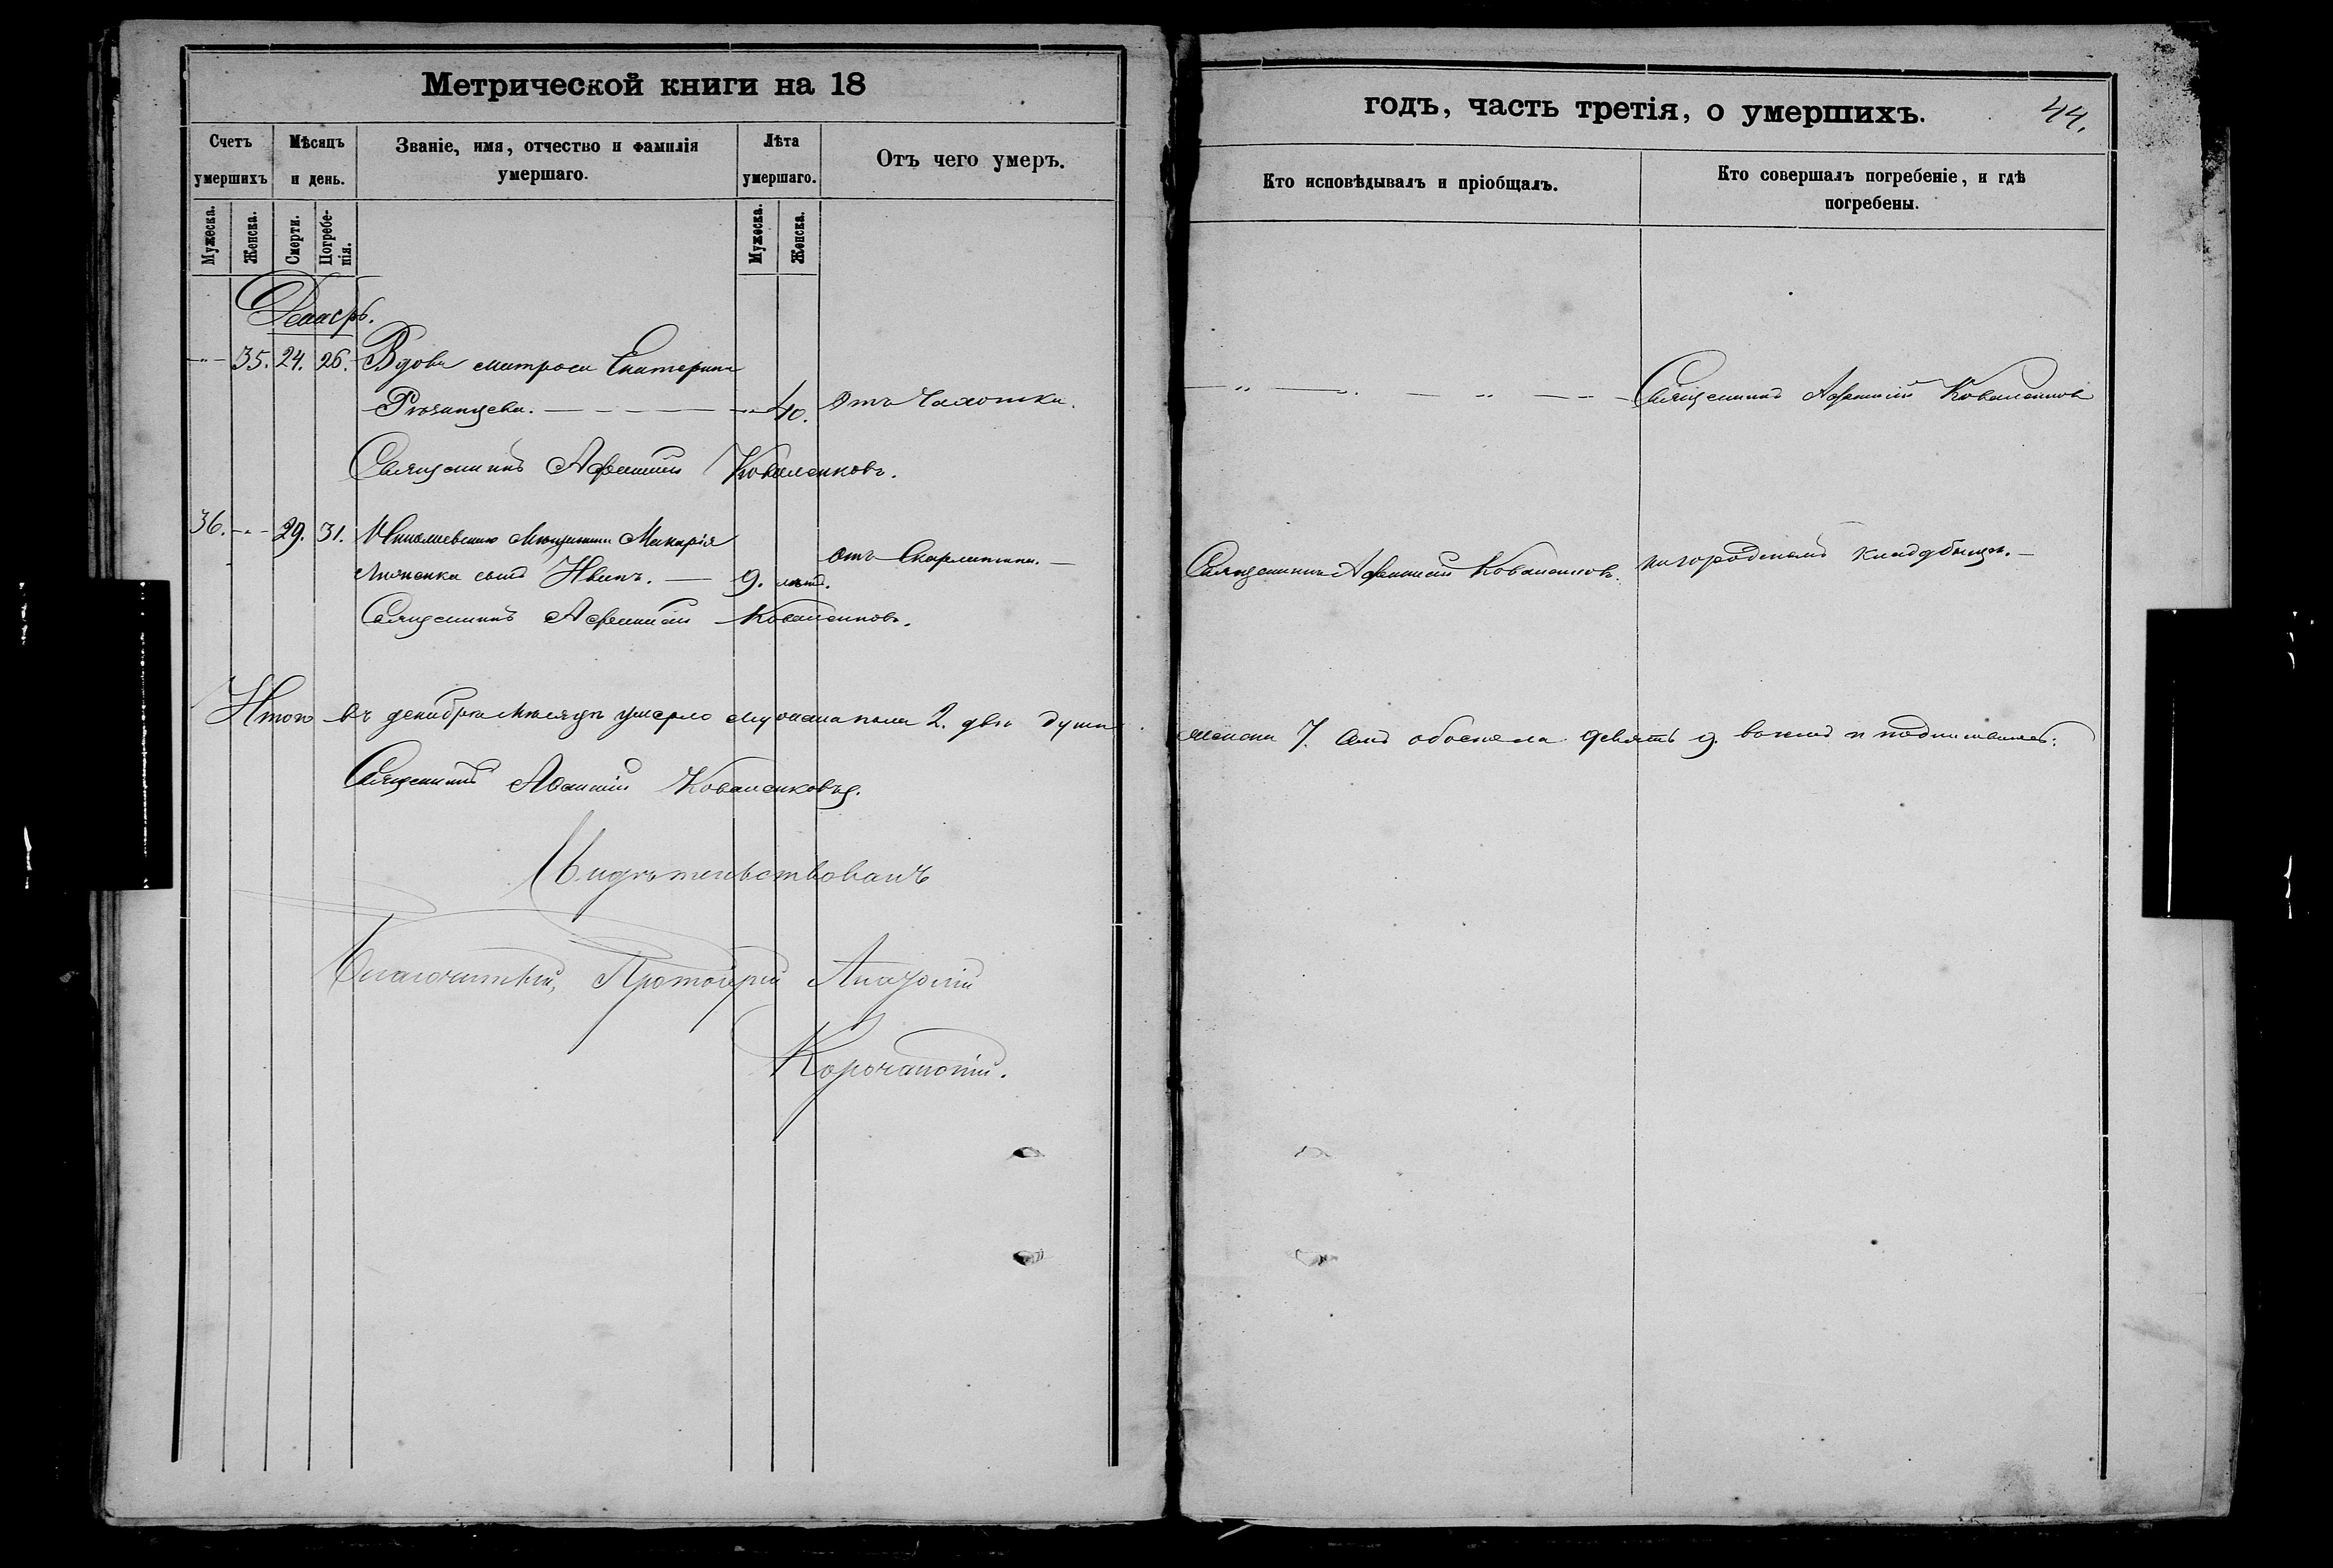 Метрической книги на 18
Счетъ умершихъ
Мѣсяцъ и день.
Званіе, имя, отчество и фамилія умершаго.
Лѣта умершаго.
Отъ чего умеръ.
Мужеска.
Женска.
Смерти.
Погребенія.
Мужеска.
Женска.
Декабрь.
35. 24. 26. Вдова матроса Екатерина
40. Отъ Чахотки.
Священникъ Афанасій Коваленковъ.
36. 29. 31. Николаевскаго Мѣщанина Макарія
сынъ Иванъ. 9. лѣтъ.
отъ Скарлатины.
Священникъ Афанасій Коваленковъ.
Итого въ декабрѣ Мѣсяцѣ умерло мужеска пола 2. двѣ души
Священникъ Афанасій Коваленковъ.
Свидѣтельствовалъ
Благочинный, Протоіерей Анатолій
годъ, часть третія, о умершихъ.
44.
Кто исповѣдывалъ и пріобщалъ.
Кто совершалъ погребеніе, и гдѣ погребены.
Священникъ Афанасій Коваленковъ
Священникъ Афанасій Коваленковъ.
на городскомъ кладбищѣ.
женска 7. семь обоего пола девять 9. въ чемъ и подписываюсь: